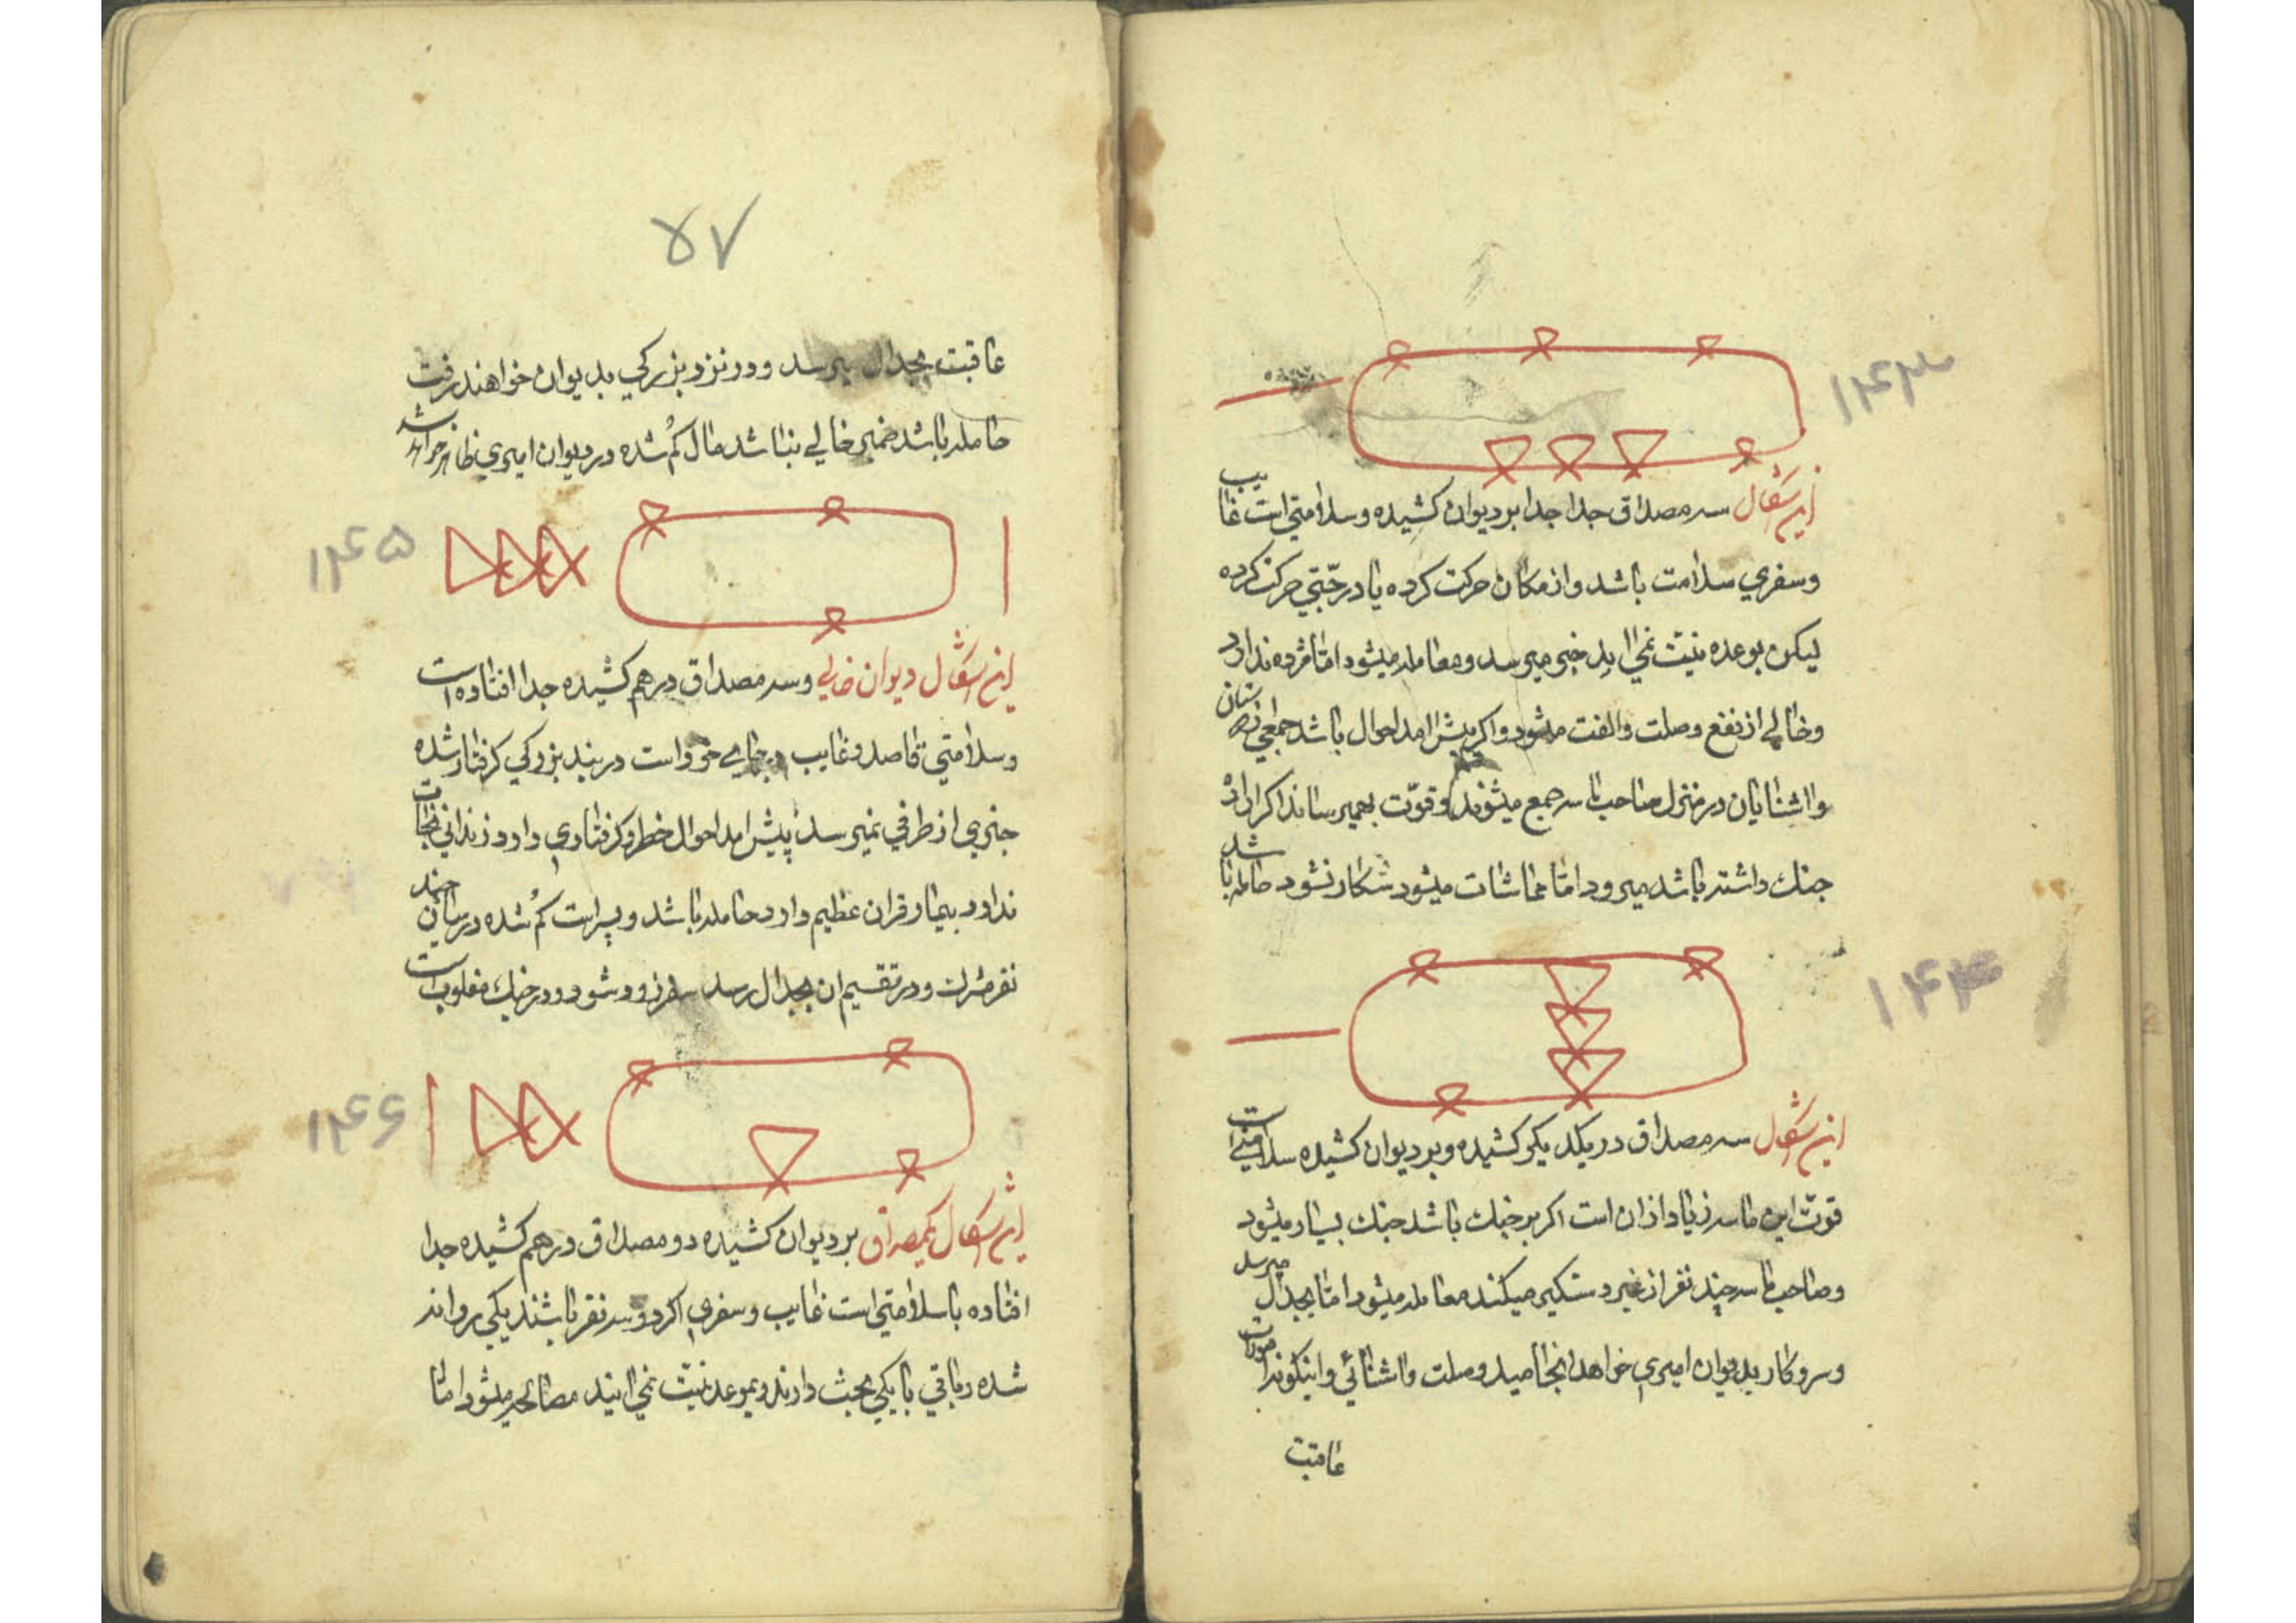 ۱۴۳
این اشکال سه مصداق جدا جدا بر دیوان کشیده و سلامتی است غایب
وسفری سلامت باشد واز مکان حرکت کرده یا در حبتی حرکت کرده
لیکن بوعده نیت نمی اید خبر میرسد ومعامله میشود اما مژده ندارد
وخالی از نفع وصلت والفت میشود واکر پیش امد احوال باشد جمعی
واشنایان در منزل صاحب تاسه جمع میشوند وقوت بهم میرسانند اکر اراده
جنك داشته باشد میرود اما مماشات میشود شکار نشود حامله باشد
۱۴۴
این اشکال سه مصداق در یکدیکر کشیده وبر دیوان کشیده سلامتی است
قوت این تاسه زیاد از ان است اکر بر جنك باشد جنك بسیار میشود
وصاحب تاسه چند نفر از غیر دستکیر میکند معامله میشود اما بجدال میرسد
وسروکار بدیوان امیری خواهد انجامید وصلت واشنائی
عاقبت
۵۷
عاقبت بجدال میرسد ودر نزد بزرکی بدیوان خواهند رفت
حامله باشد ضمیر خالی نباشد مال کم شده در دیوان امیری ظاهر خواهد شد
۱۴۵
این اشکال دیوان خالی وسه مصداق درهم کشیده جدا افتاده است
وسلامتی قاصد وغایب در جای خود است در بند بزرکی کرفتار شده
خبری از طرفی نمیرسد پیش امد احوال خطر وکرفتاری دارد زندانی نجات
ندارد بیمار قران عظیم دارد حامله باشد وپسر است کم شده در میان چند
نفر مشرك ودر تقسیم ان بجدال رسد سفر زود شود ودر جنك مغلوب است
۱۴۶
این اشکال یکمصداق بر دیوان کشیده دو مصداق درهم کشیده جدا
افتاده باسلامتی است غایب وسفری اکر دو سه نفر باشند یکی روانه
شده وباقی با یکی بحث دارند وبموعد نیت نمی ایند مصالحه میشود اما با